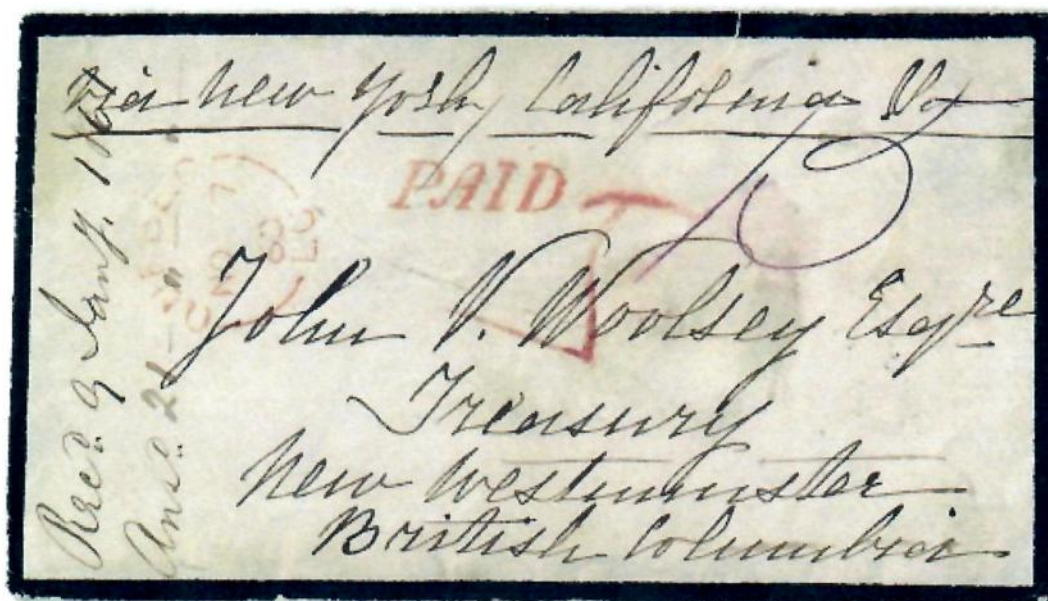 via New York, California &c
PAID
John V. Woolsey Esqre
Treasury
New Westminster
British Columbia
Recd. 9 Jany.
Ansd. 21